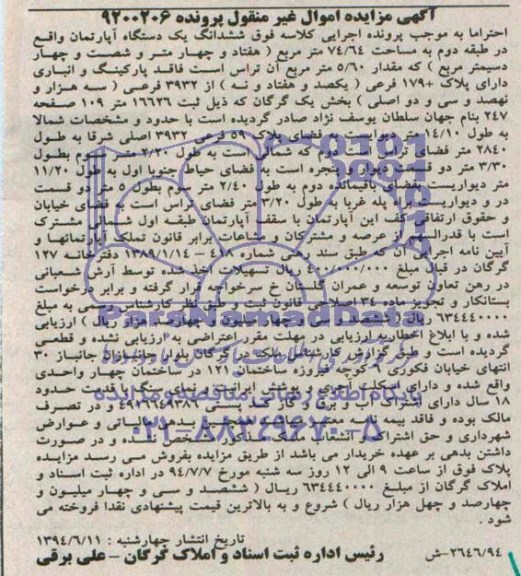 آگهی مزایده اموال غیر منقول پرونده ۹۲۰۰۲۰۶
احتراما به موجب پرونده اجرایی کلاسه فوق ششدانگ یک دستگاه آپارتمان واقع
در طبقه دوم به مساحت ۷۴/۶۴ متر مربع ( هفتاد و چهار متر و شصت و چهار
دسیمتر مربع ) که مقدار ۵/۶۰ متر مربع آن تراس است فاقد پارکینگ و انباری
دارای پلاک +۱۷۹ فرعی ( یکصد و هفتاد و نه ) از ۳۹۳۲ فرعی ( سه هزار و
نهصد و سی و دو اصلی ) بخش یک گرگان که ذیل ثبت ۱۶۶۲۶ متر ۱۰۹ صفحه
۲۴۷ بنام جهان سلطان یوسف نژاد صادر گردیده است با حدود و مشخصات شمالا
به طول ۱۴/۱۰ متر دیواریست به فضای پلاک ۵۹ فرعی ۳۹۳۲ اصلی شرقا به طول
۲۸۴۰ متر فضای تراس است دوم که شمالی است به طول ۲/۲۰ متر سوم بطول
۳/۳۰ متر دو قسمت دیوار و پنجره است به فضای حیاط جنوبا اول به طول ۱۱/۲۰
متر دیواریست بفضای باقیمانده دوم به طول ۲/۴۰ متر سوم بطول ۵ متر دو قسمت
در و دیواریست راه پله غربا به طول ۳/۲۰ متر فضای تراس است به فضای خیابان
و حقوق ارتفاقی کف این آپارتمان با سقف آپارتمان طبقه اول شمالی مشترک
است با قدرالسهم از عرصه و مشترکان و مشاعات برابر قانون تملک آپارتمانها و
آیین نامه اجرایی آن که طبق سند رهنی شماره ۴۱۸ – ۱۳۸۹/۱/۱۴ دفترخانه ۱۲۷
گرگان در قبال مبلغ ۴۰۰/۰۰۰/۰۰۰ ریال تسهیلات اخذ شده توسط آرش شعبانی
در رهن تعاون توسعه و عمران گلستان خ سرخواجه قرار گرفته و برابر درخواست
بستانکار و تجویز ماده ۳۴ اصلاحی قانون ثبت و طبق نظر کارشناس رسمی به مبلغ
۶۳۴۴۴۰۰۰۰ ریال ( ششصد و سی و چهار میلیون و چهارصد هزار ریال ) ارزیابی
شده و با ابلاغ اخطاریه ارزیابی در مهلت مقرر اعتراضی به ارزیابی نشده و قطعی
گردیده است و طبق گزارش کارشناس ملک در گرگان بلوار جانبازان جانباز ۳۰
انتهای خیابان فکوری ۹ کوچه فیروزه ساختمان ۱۲۱ در ساختمان چهار واحدی
واقع شده و دارای اسکلت آجری و پوشش ایرانیت و نمای سنگ با قدمت حدود
۱۸ سال دارای اشتراک آب و برق و گاز کد پستی ۴۹۱۶۶۴۹۳۸۶ و در تصرف
مالک بوده و فاقد بیمه نامه معتبر میباشد و هرچند بدهی مالیاتی و عوارض
شهرداری و حق اشتراک و انشعاب ملک مذکور مشخص نشده و در صورت
داشتن بدهی بر عهده خریدار می باشد از طریق مزایده بفروش می رسد مزایده
پلاک فوق از ساعت ۹ الی ۱۲ روز سه شنبه مورخ ۹۴/۷/۷ در اداره ثبت اسناد و
املاک گرگان از مبلغ ۶۳۴۴۴۰۰۰۰ ریال ( ششصد و سی و چهار میلیون و
چهارصد و چهل هزار ریال ) شروع و به بالاترین قیمت پیشنهادی نقدا فروخته می
شود .
تاریخ انتشار چهارشنبه : ۱۳۹۴/۶/۱۱
۲۶۴۶/۹۴-ش رئیس اداره ثبت اسناد و املاک گرگان – علی برقی
ParsNamadData
پایگاه اطلاع رسانی مناقصه و مزایده
۰۲۱-۸۸۳۴۹۶۷۰-۵